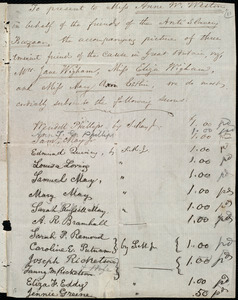 To present to Miss Anne W. Weston
in behalf of the friends of the Anti Slavery
Bazaar, the accompanying picture of three
friends of the Cause in Great Britain viz
Mrs Jane Wigham, Miss Eliza Wigham,
and Miss Mary Estlin, we do most
cordially subscribe the following sums:
Wendell Phillips by S. May Jr 1.00 pd
Ann T. G. Phillips 1.00 pd
Saml May Jr 1.00 pd
Edmund Quincy, by S.M.Jr 1.00 pd
Louisa Loring " 1.00 pd
Samuel May, " 1.00 pd
Mary May, " 1.00 pd
Sarah Russell May " 1.00 pd
A. R. Bramhall " 1.00 pd
Sarah P. Remond
Caroline E. Putnam by S.M.Jr 1.00 pd
Joseph Ricketson 1.00 pd
Eliza F. Eddy " 1.00 pd
Jennie Greene " .50 pd